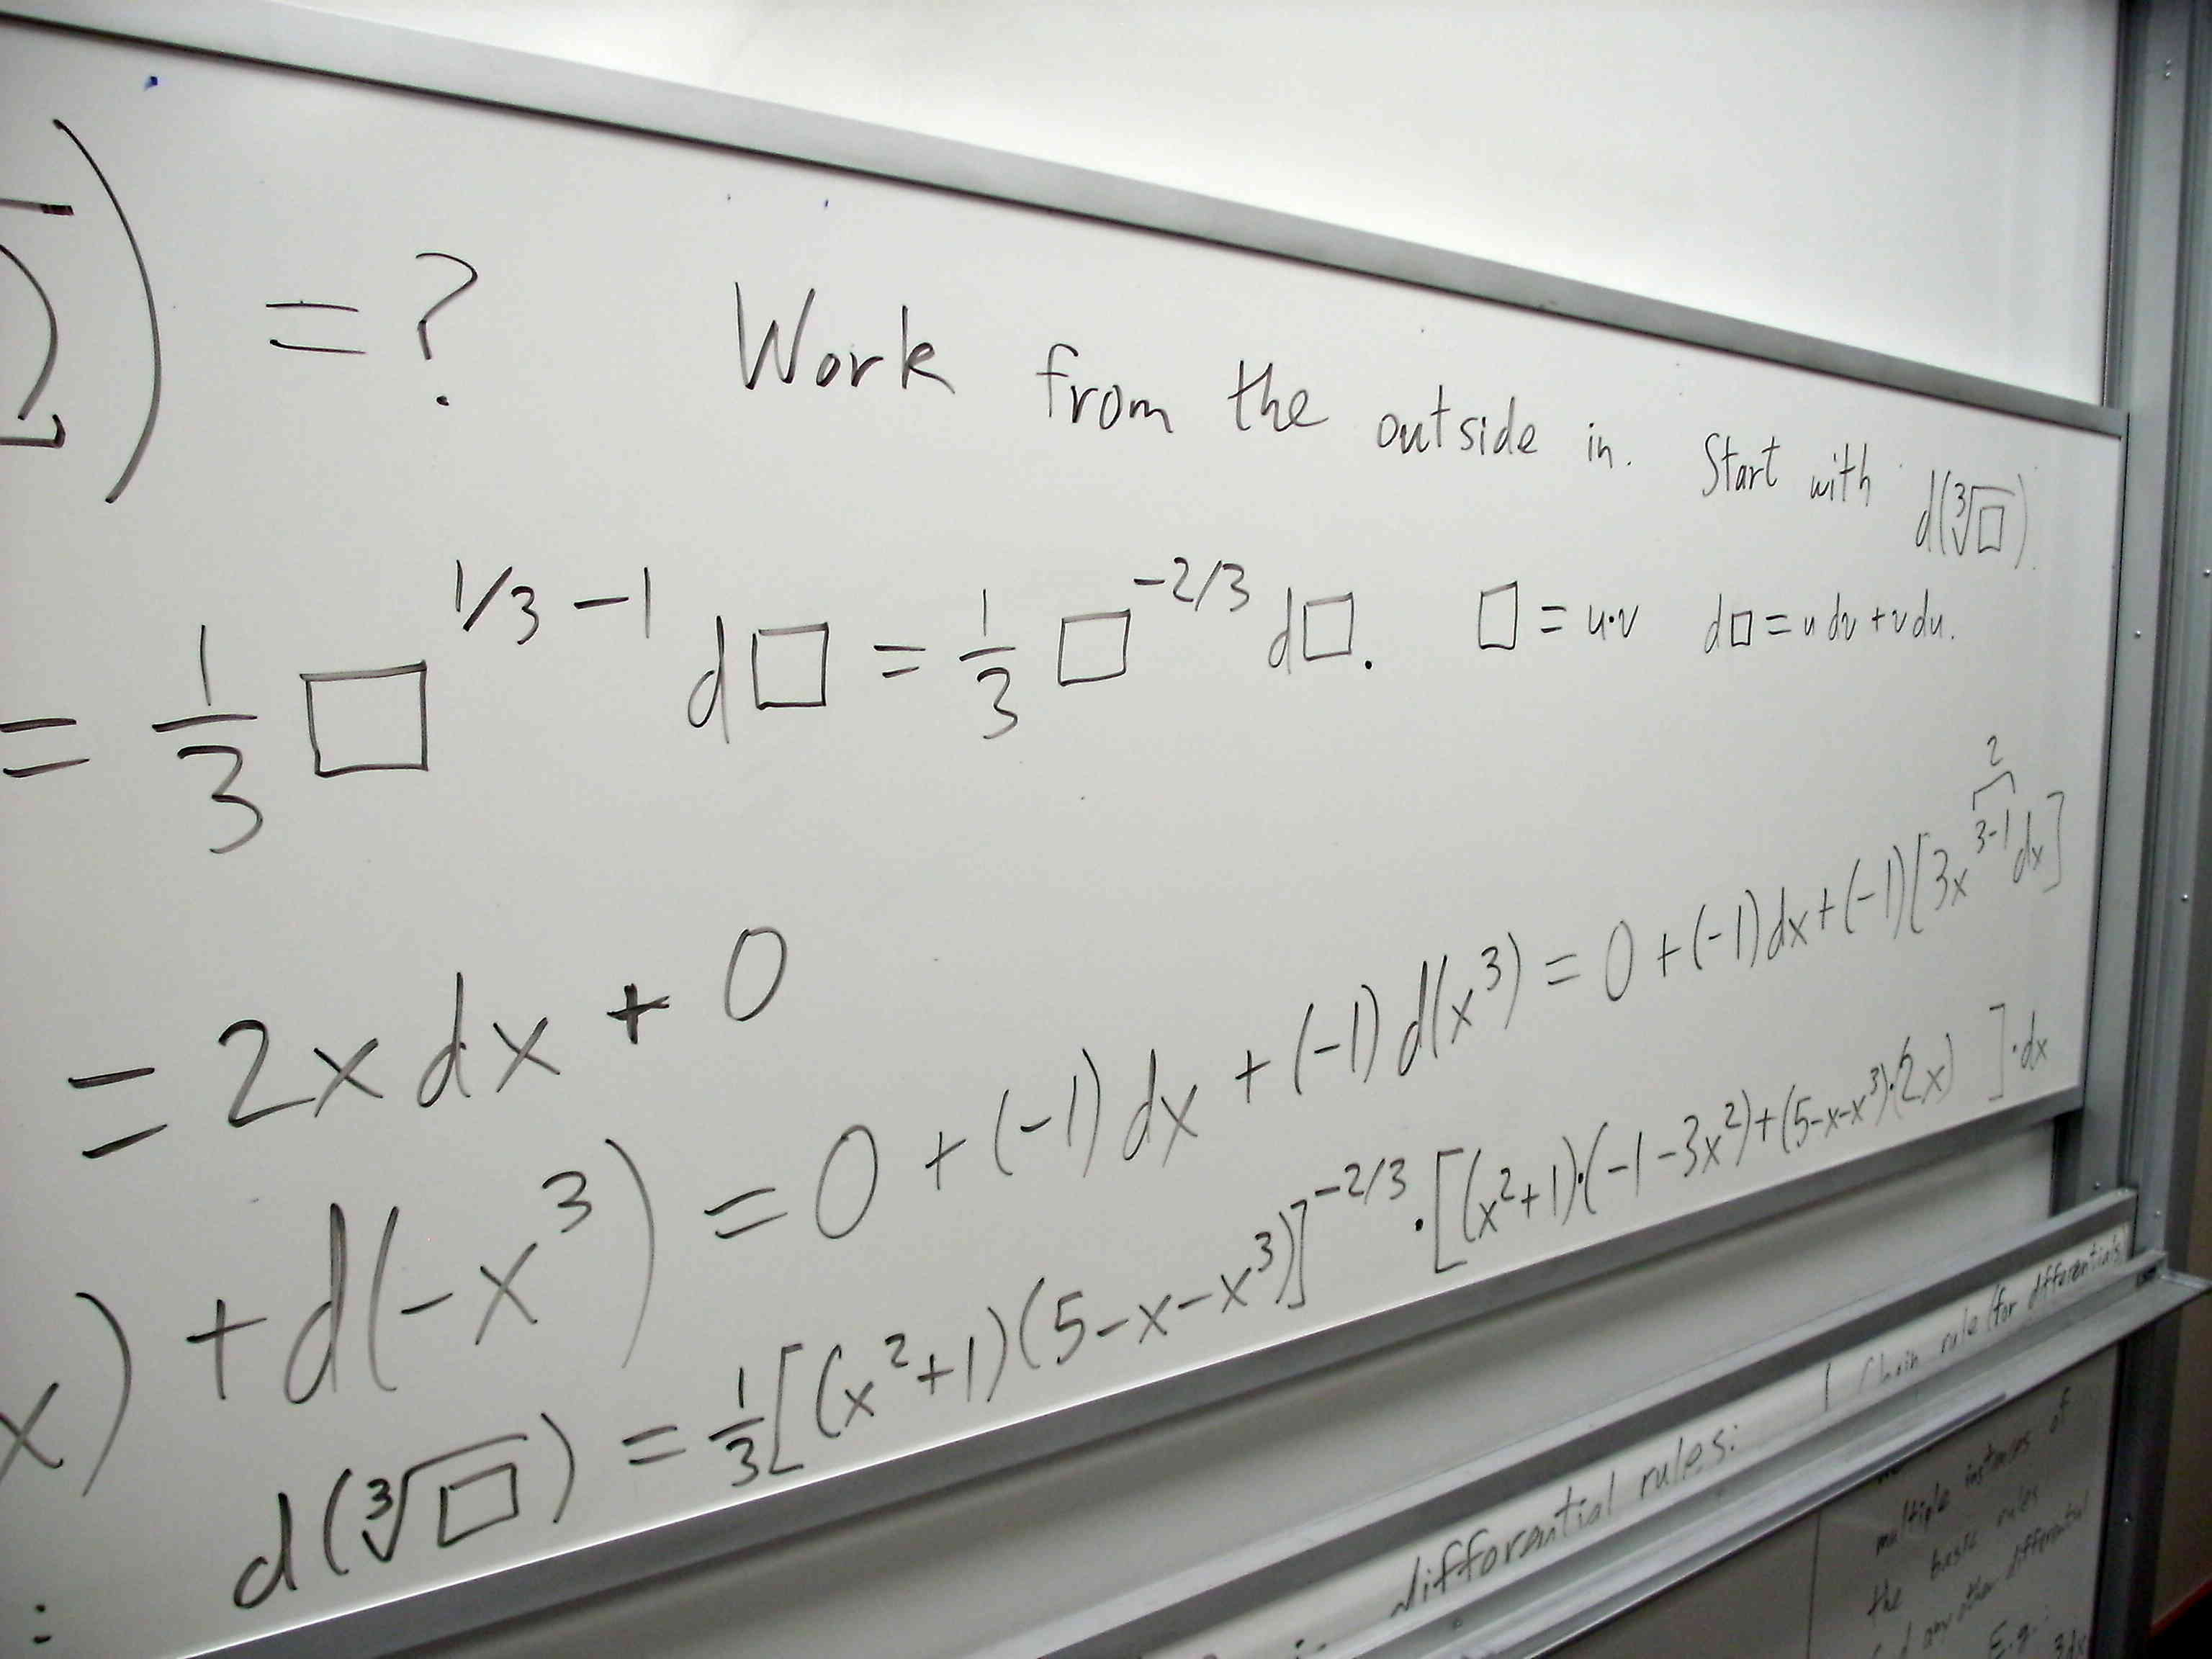 ) = ? Work from the outside in. Start with d(∛□).
= 1/3 □^(1/3 - 1) d□ = 1/3 □^(-2/3) d□. □ = u·v d□ = u dv + v du.
= 2x dx + 0
x) + d(-x³) = 0 + (-1) dx + (-1) d(x³) = 0 + (-1) dx + (-1)[3x^(3-1) dx]
2
: d(∛□) = 1/3 [(x²+1)(5-x-x³)]^(-2/3) · [(x²+1)·(-1-3x²)+(5-x-x³)·(2x) ]·dx
differential rules: Chain rule (for differentials)
multiple instances of
the basic rules
any other differential
E.g.:
3dx